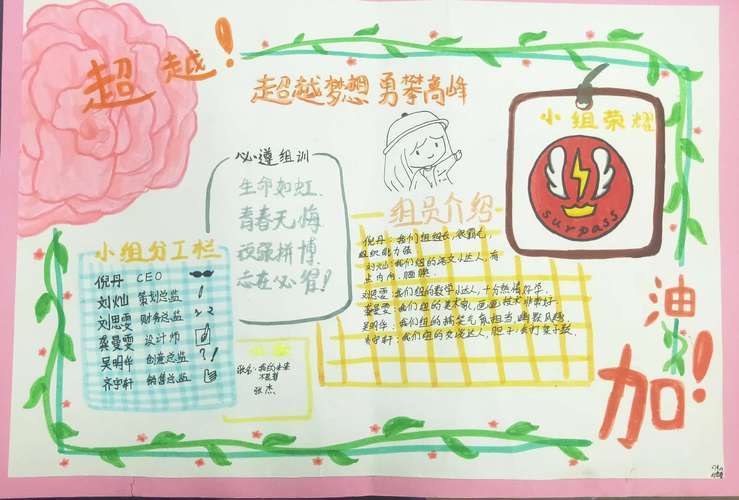 超越!
超越梦想 勇攀高峰
小组荣耀
surpass
必遵组训
生命如虹
青春无悔
顽强拼博
志在必得!
组员介绍
倪丹:我们组组长,很霸气,
组织能力强
刘灿:我们组的语文小达人,有
点内向、腼腆
刘思雯:我们组的数学小达人,十分热情好学
龚曼雯:我们组的美术家,画画技术非常好.
吴明华:我们组的搞笑气氛担当,幽默风趣
小组分工栏
倪丹 CEO
刘灿 策划总监
刘思雯 财务总监
龚曼雯 设计师
吴明华 创意总监 ?!
齐宇轩 销售总监
张杰
加油!